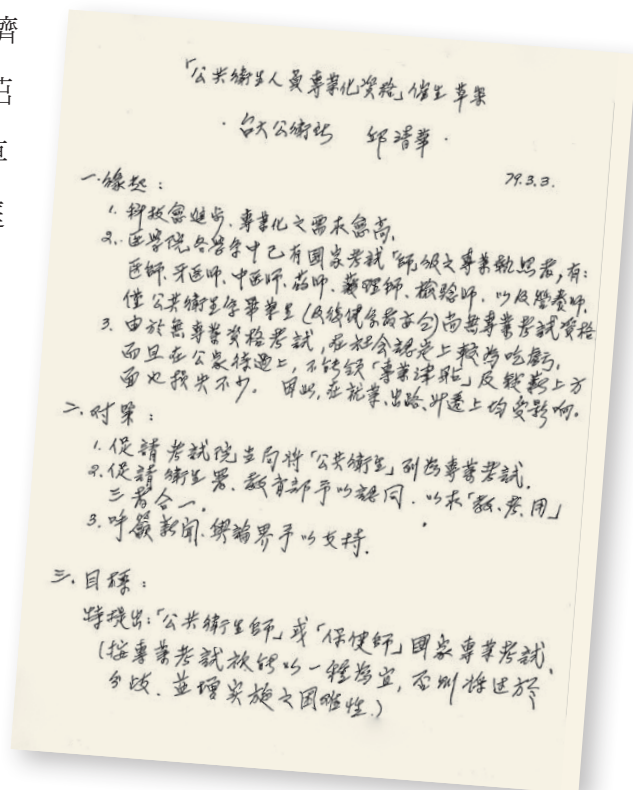 「公共衛生人員專業化資格」催生草案
·台大公衛所 邱清華·
79.3.3.
一.緣起：
1. 科技愈進步.專業化之需求愈高.
2. 医学院各学系中已有國家考試「師」級之專業執照者,有:
医師.牙医師.中医師.药師.護理師.檢驗師.以及營養師.
僅公共衛生学畢業生(及復健系尚無專業考試資格
3. 由於無專業資格考試,在社会認定上較為吃虧.
而且在公家待遇上,不能領「專業津貼」及銓敘上方
面也損失不少. 因此,在就業、出路、升遷上均受影响.
二.对策：
1. 促請考試院当局將「公共衛生」列為專業考試.
2. 促請衛生署.教育部予以認同.以求「教.考.用」
三者合一.
3. 呼籲新聞.輿論界予以支持.
三.目標：
特提出:「公共衛生師」或「保健師」國家專業考試.
(按專業考試 以一種為宜,否則將过於
分歧.並增实施之困难性.)